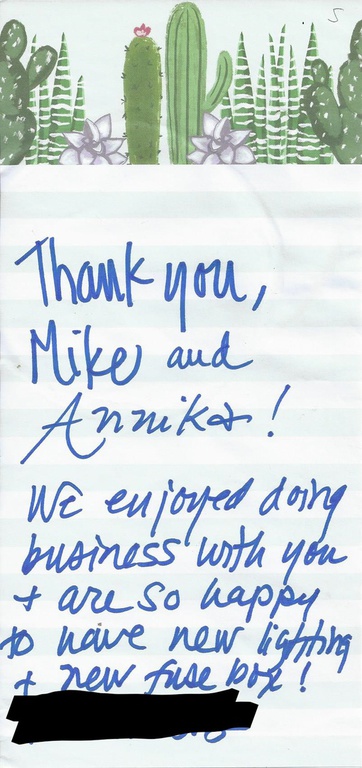 Thank you,
Mike and
Annika!
We enjoyed doing
business with you
+ are so happy
to have new lighting
+ new fuse box!